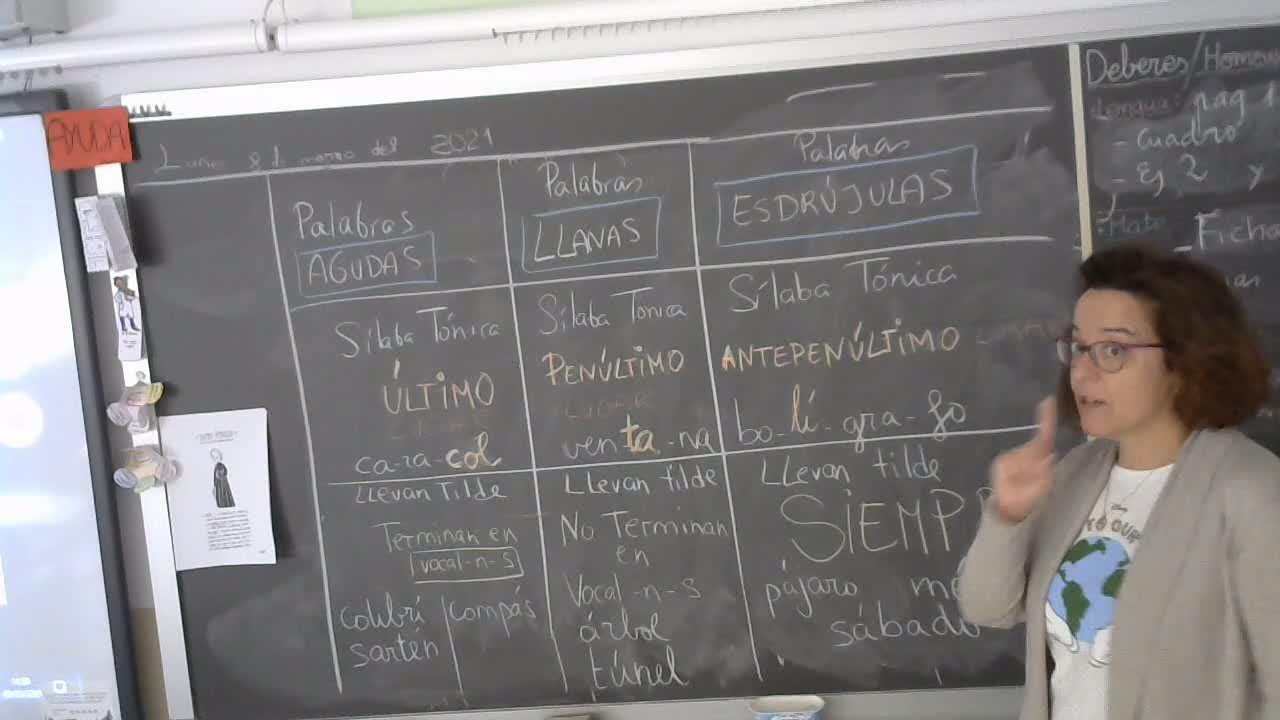 AYUDA
Lunes 8 de marzo del 2021
Palabras
AGUDAS
Sílaba Tónica
ÚLTIMO
LUGAR
ca-ra-col
LLevan Tilde
Terminan en
vocal-n-s
colibrí
sartén
compás
Palabras
LLANAS
Sílaba Tónica
PENÚLTIMO
LUGAR
ven-ta-na
LLevan tilde
No Terminan
en
Vocal-n-s
árbol
túnel
Palabras
ESDRÚJULAS
Sílaba Tónica
ANTEPENÚLTIMO
bo-lí-gra-fo
LLevan tilde
SIEMP
pájaro
sábado
Deberes/
Lengua: pag 1
- cuadro
- Ej 2 y
- Ficha